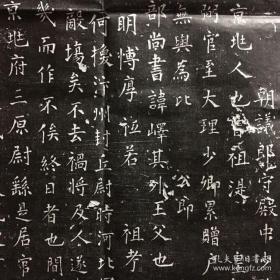 朝議郎守殿中
京地人也曾祖湛
弼官至大理少卿累贈戶
無與為比 公即
部尚書諱嶧其外王父也
明博厚位若 祖考
何授汴州封丘尉時河北
敵境矣不去禍將及人遂
幾而作不俟終日者也間
京地府三原尉縣是居官